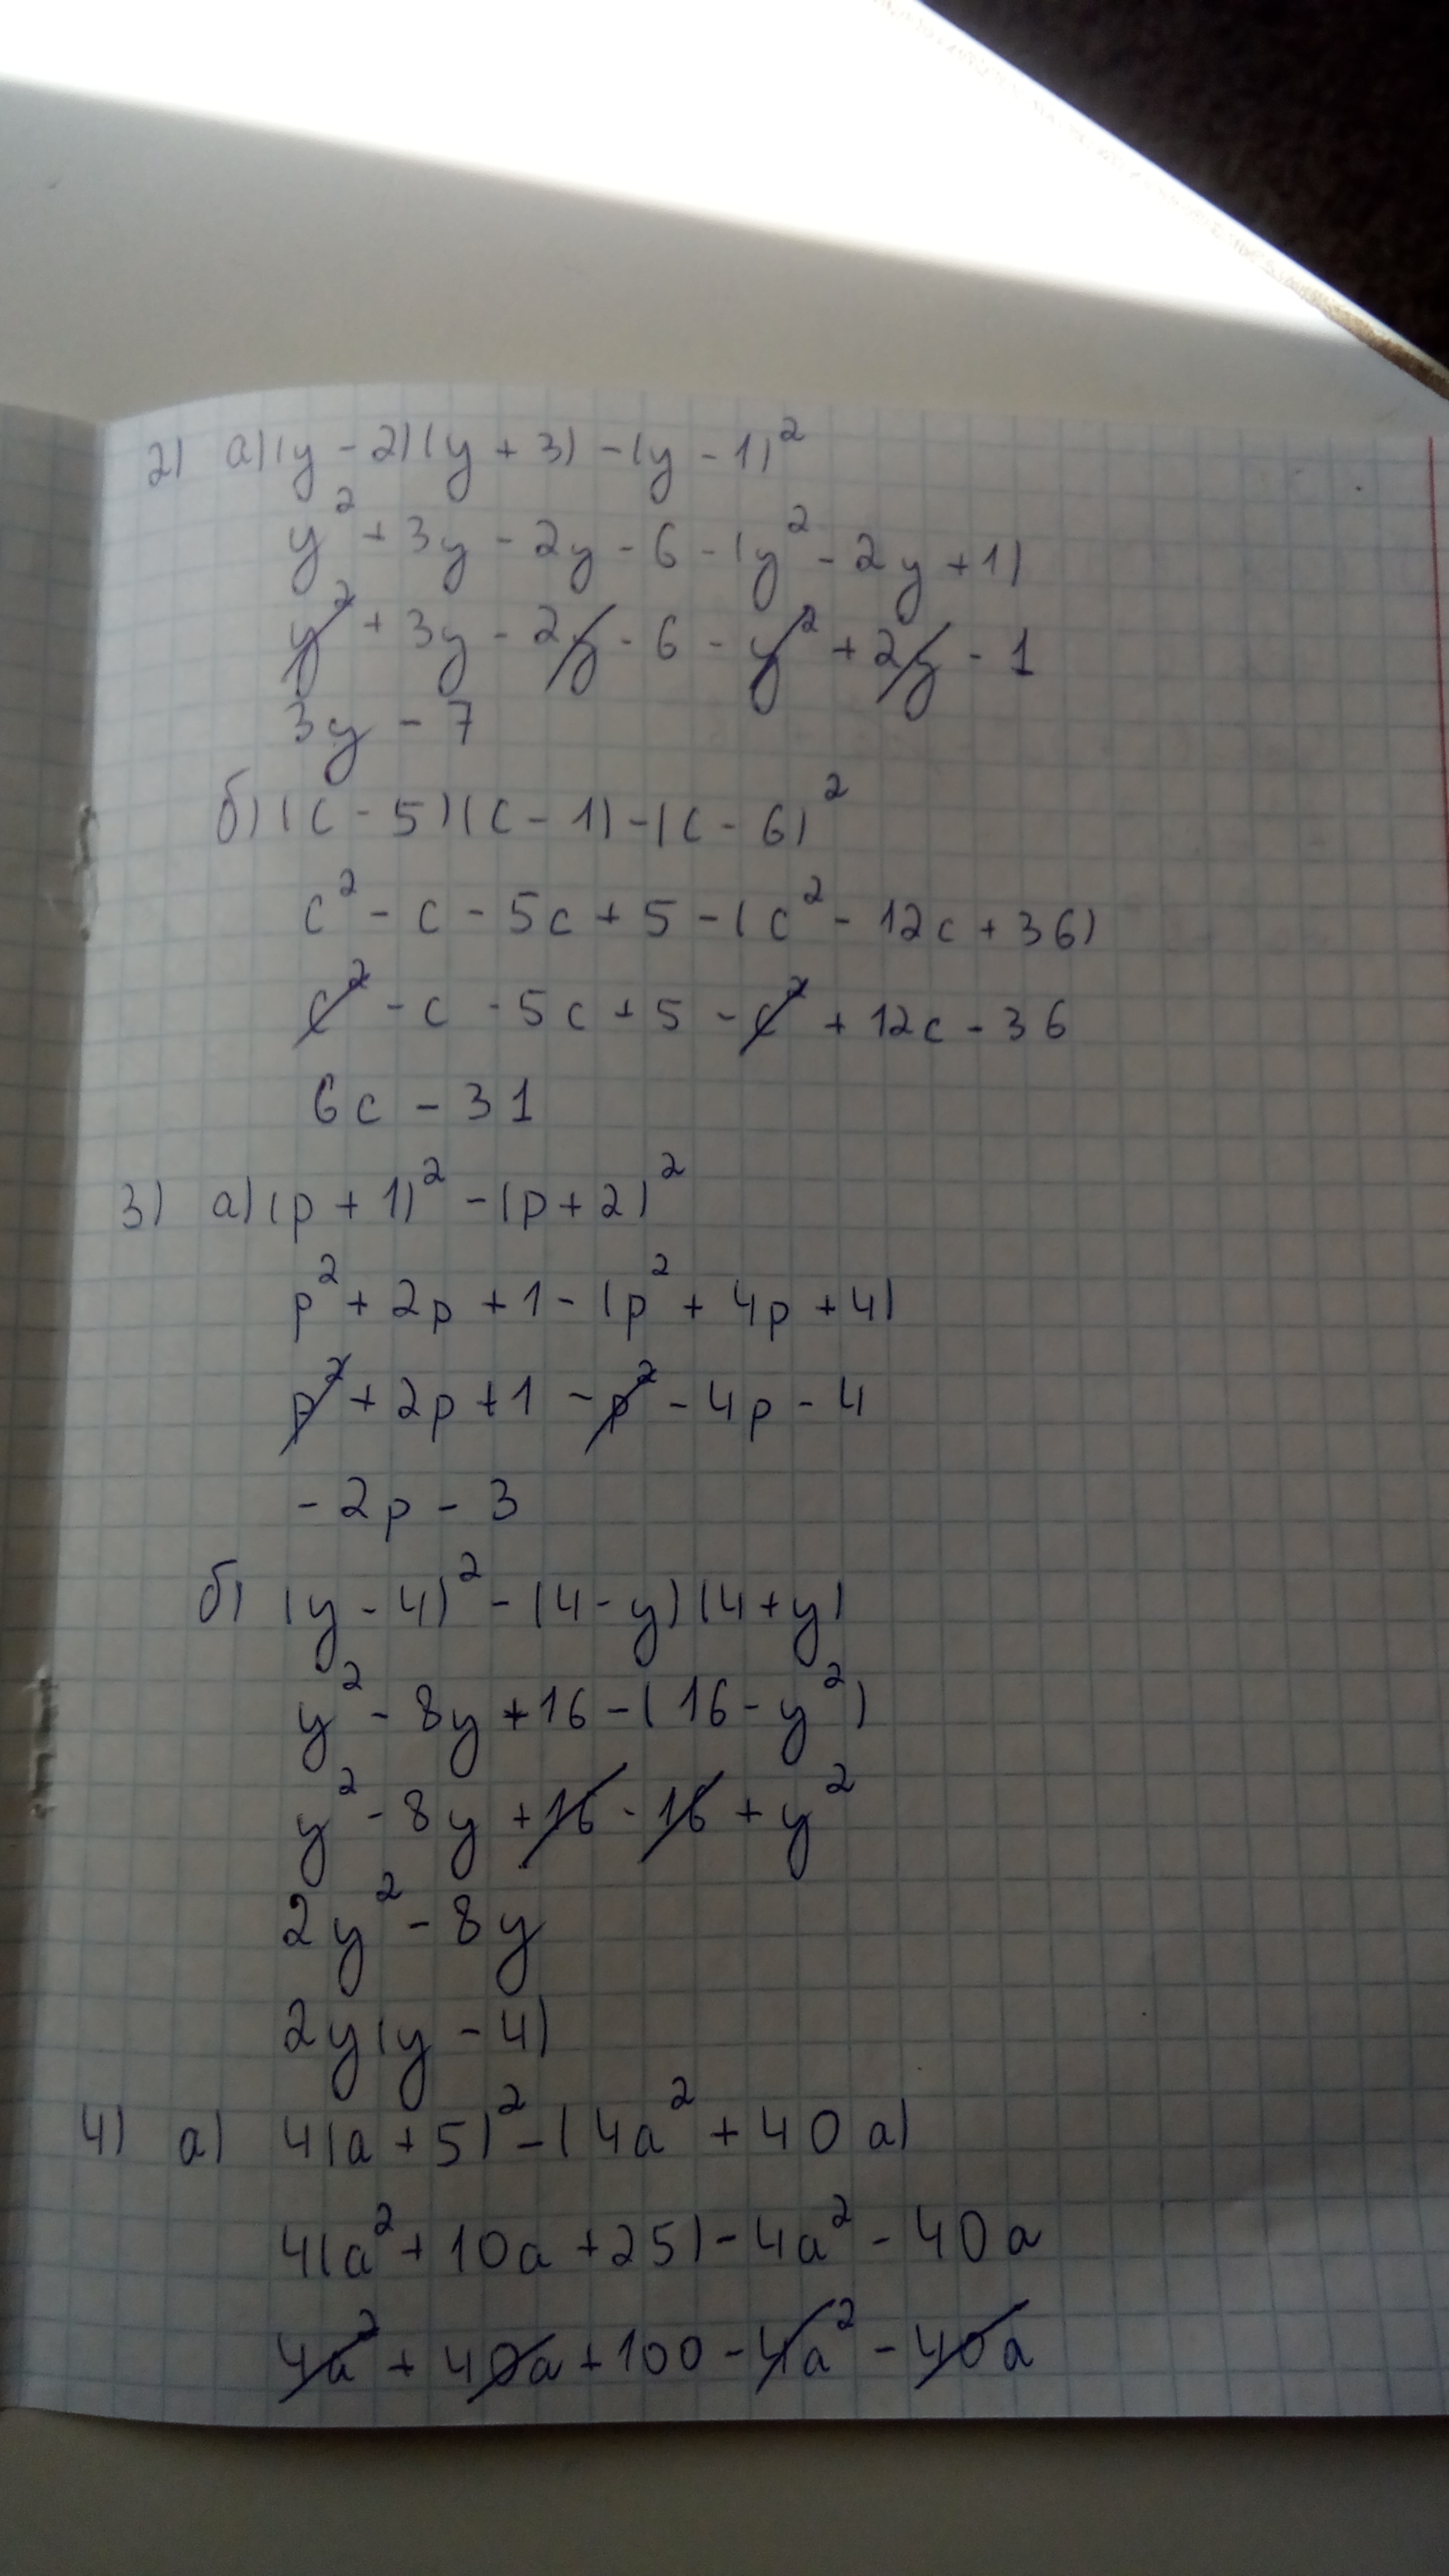 2) а) (y - 2)(y + 3) - (y - 1)²
y² + 3y - 2y - 6 - (y² - 2y + 1)
y² + 3y - 2y - 6 - y² + 2y - 1
3y - 7
б) (c - 5)(c - 1) - (c - 6)²
c² - c - 5c + 5 - (c² - 12c + 36)
c² - c - 5c + 5 - c² + 12c - 36
6c - 31
3) а) (p + 1)² - (p + 2)²
p² + 2p + 1 - (p² + 4p + 4)
p² + 2p + 1 - p² - 4p - 4
- 2p - 3
б) (y - 4)² - (4 - y)(4 + y)
y² - 8y + 16 - (16 - y²)
y² - 8y + 16 - 16 + y²
2y² - 8y
2y(y - 4)
4) а) 4(a + 5)² - (4a² + 40a)
4(a² + 10a + 25) - 4a² - 40a
4a² + 40a + 100 - 4a² - 40a